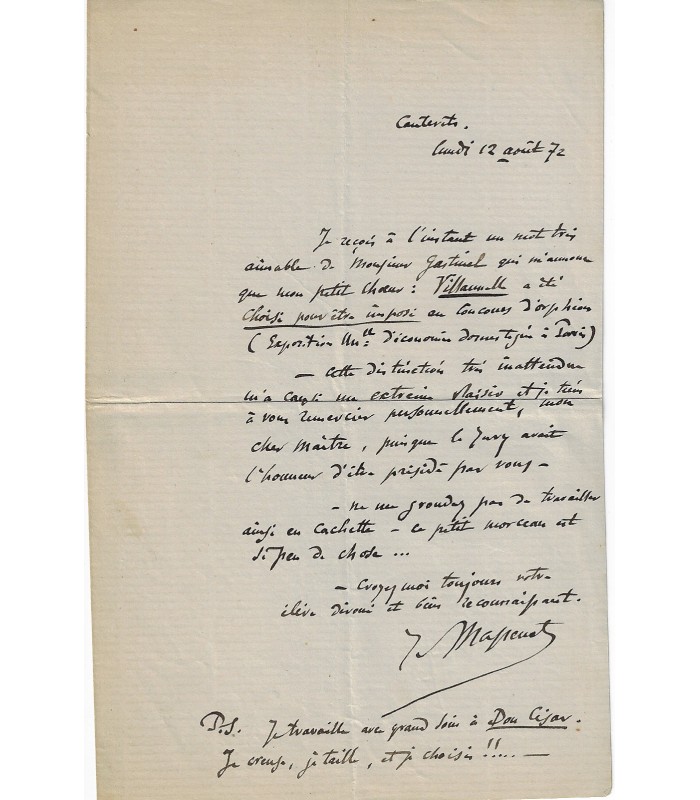 Cauterets.
lundi 12 août 72
Je reçois à l'instant un mot très
aimable de Monsieur Gastinel qui m'annonce
que mon petit chœur : Villanelle a été
choisi pour être imposé au concours d'orphéons
( Exposition Un.lle d'économie domestique à Paris )
— Cette distinction très inattendue
m'a causé un extrême plaisir et je tiens
à vous remercier personnellement, mon
cher Maître, puisque le Jury avait
l'honneur d'être présidé par vous —
— ne me grondez pas de travailler
ainsi en cachette — ce petit morceau est
si peu de chose ...
— Croyez moi toujours votre
élève dévoué et bien reconnaissant.
J. Massenet
P.S. Je travaille avec grand soin à Don César.
Je creuse, je taille, et je choisis !!.... —